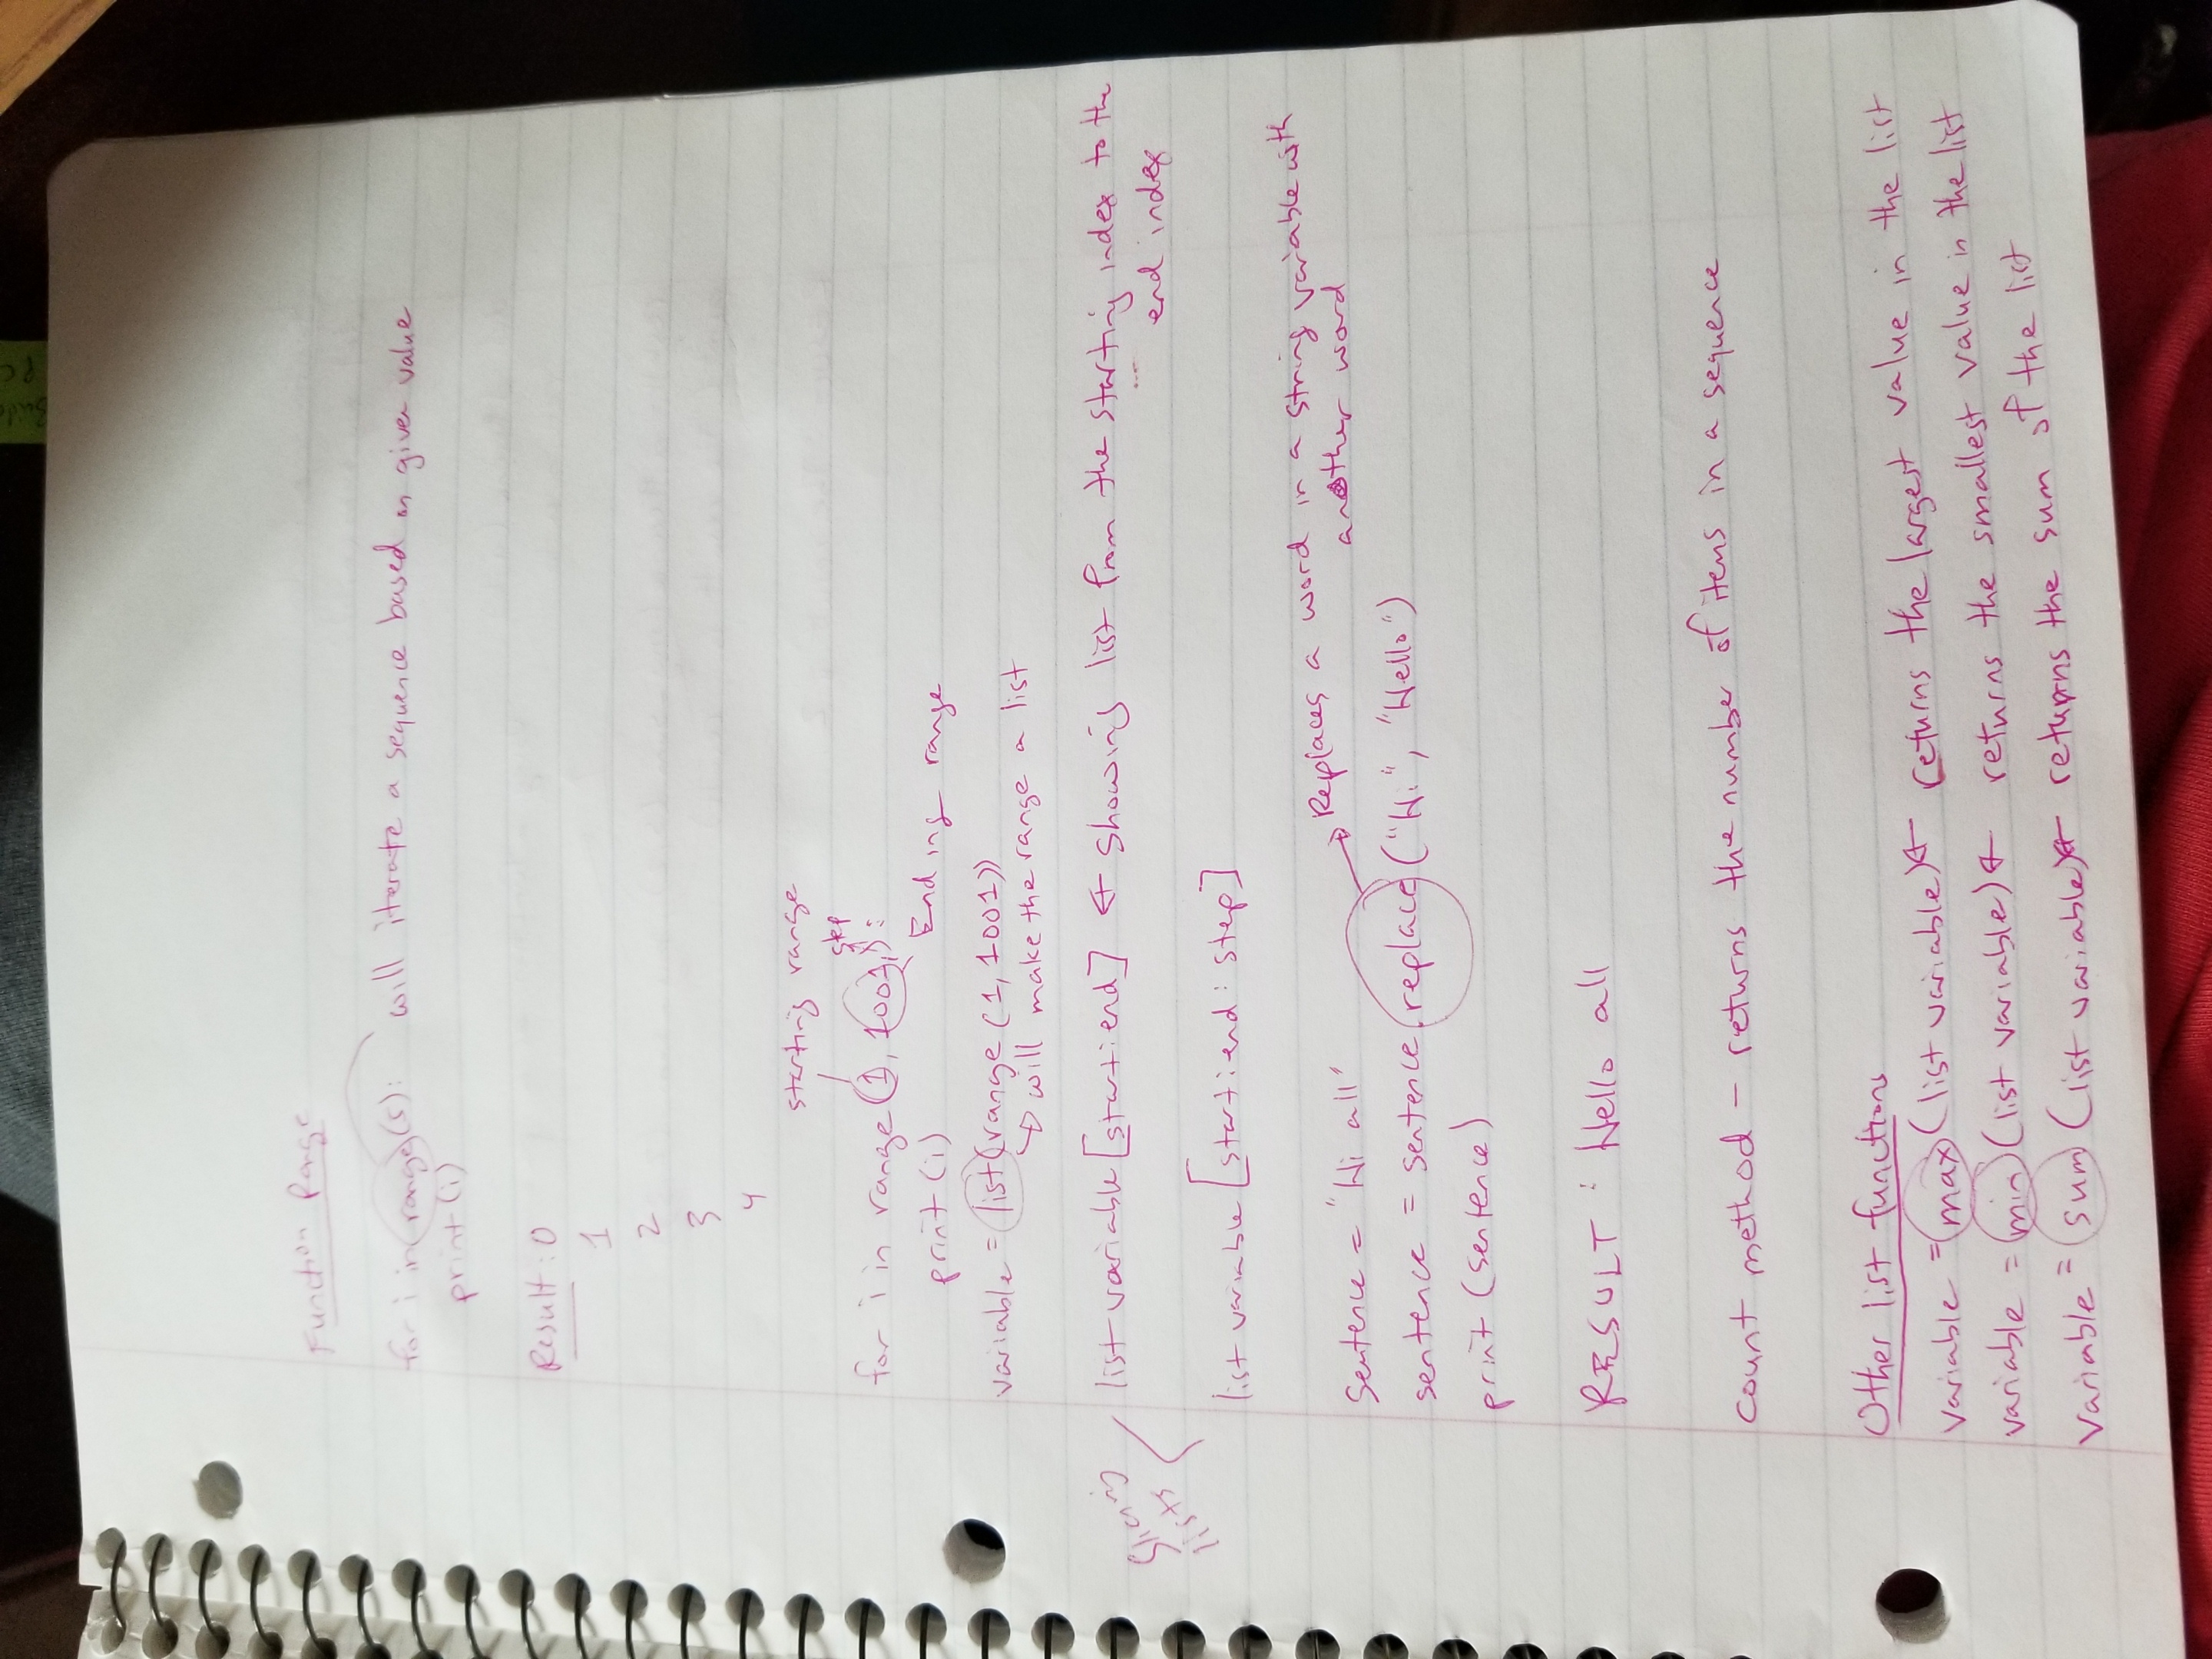 Build
PC
Function Range
for i in range(5): will iterate a sequence based on given value
print(i)
Result: 0
1
2
3
4
starting range
step
for i in range(1, 1001,):
Ending range
print(i)
variable = list(range(1,1001))
will make the range a list
Slicing lists
list variable[start:end] ← Showing list from the starting index to the
end index
list variable[start:end:step]
Replaces a word in a string variable with
another word
Sentence = "Hi all"
sentence = sentence.replace("Hi", "Hello")
print(sentence)
RESULT: Hello all
count method - returns the number of items in a sequence
Other list functions
variable = max(list variable) ← returns the largest value in the list
variable = min(list variable) ← returns the smallest value in the list
variable = sum(list variable) ← returns the sum of the list